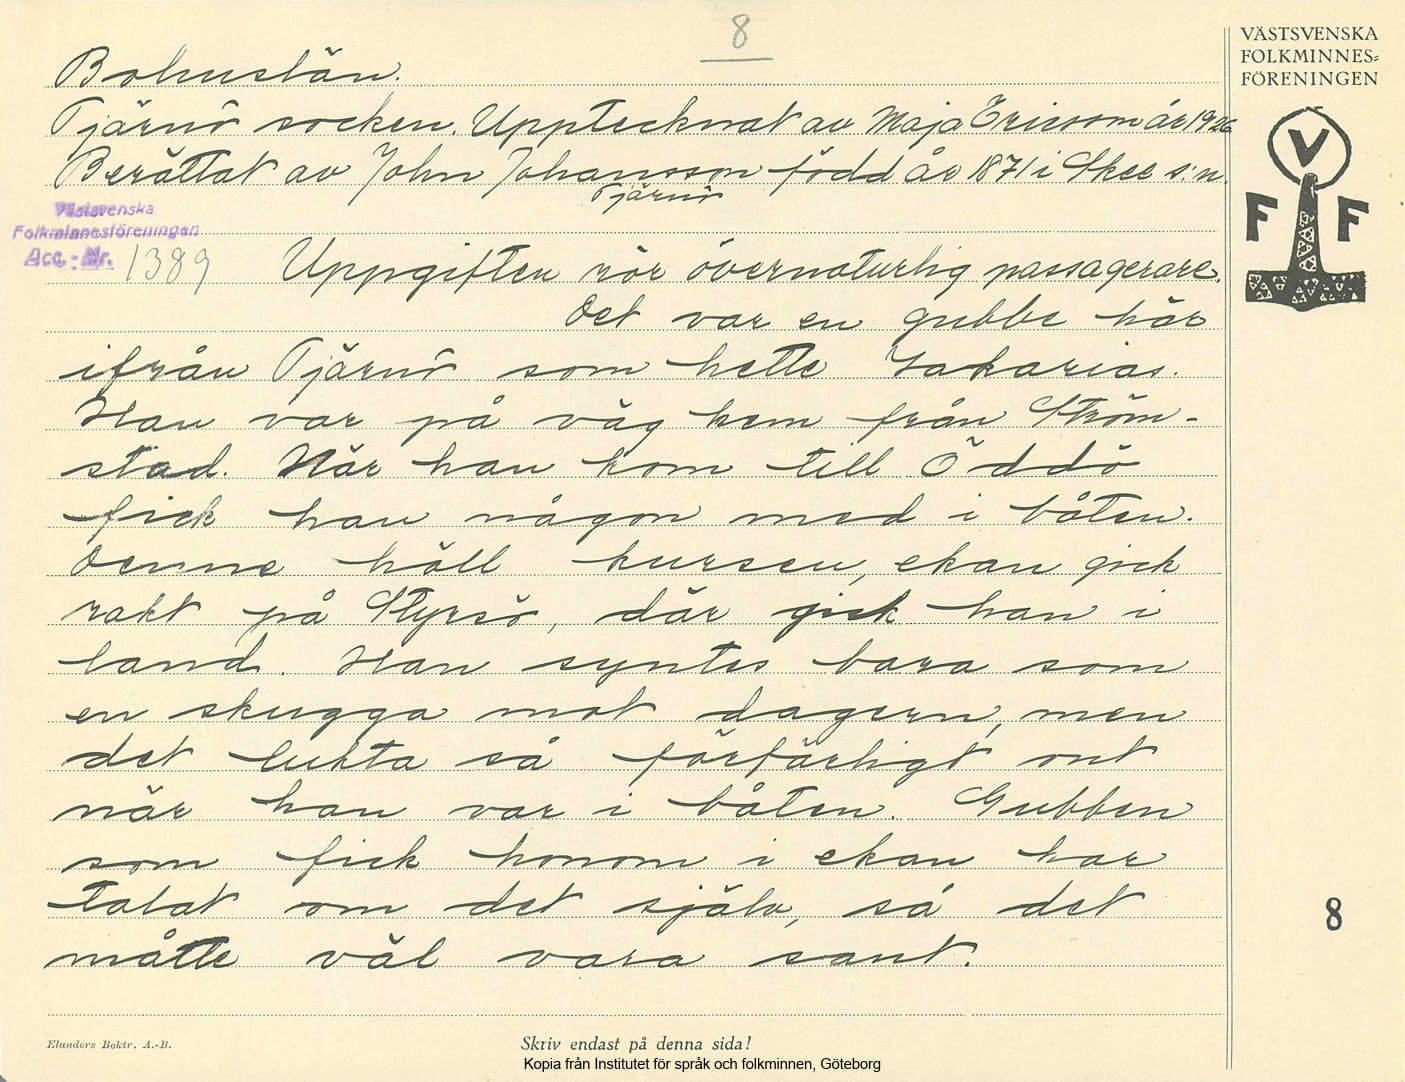 8
VÄSTSVENSKA
FOLKMINNES=
FÖRENINGEN
V
F F
Bohuslän.
Tjärnö socken. Upptecknat av Maja Ericson år 1926
Berättat av John Johansson född år 1871 i Skee s:n.
Tjärnö
Västsvenska
Folkminnesföreningen
Acc.-Nr. 1389
Uppgiften rör övernaturlig passagerare.
Det var en gubbe här
ifrån Tjärnö som hette Sakarias.
Han var på väg hem från Ström-
stad. När han kom till Öddö
fick han någon med i båten.
Denne höll kursen, ekan gick
rakt på Styrsö, där gick han i
land. Han syntes bara som
en skugga mot dagern, men
det lukta så förfärligt ont
när han var i båten. Gubben
som fick honom i ekan har
talat om det själv, så det
måtte väl vara sant.
8
Elanders Boktr. A.-B.
Skriv endast på denna sida!
Kopia från Institutet för språk och folkminnen, Göteborg